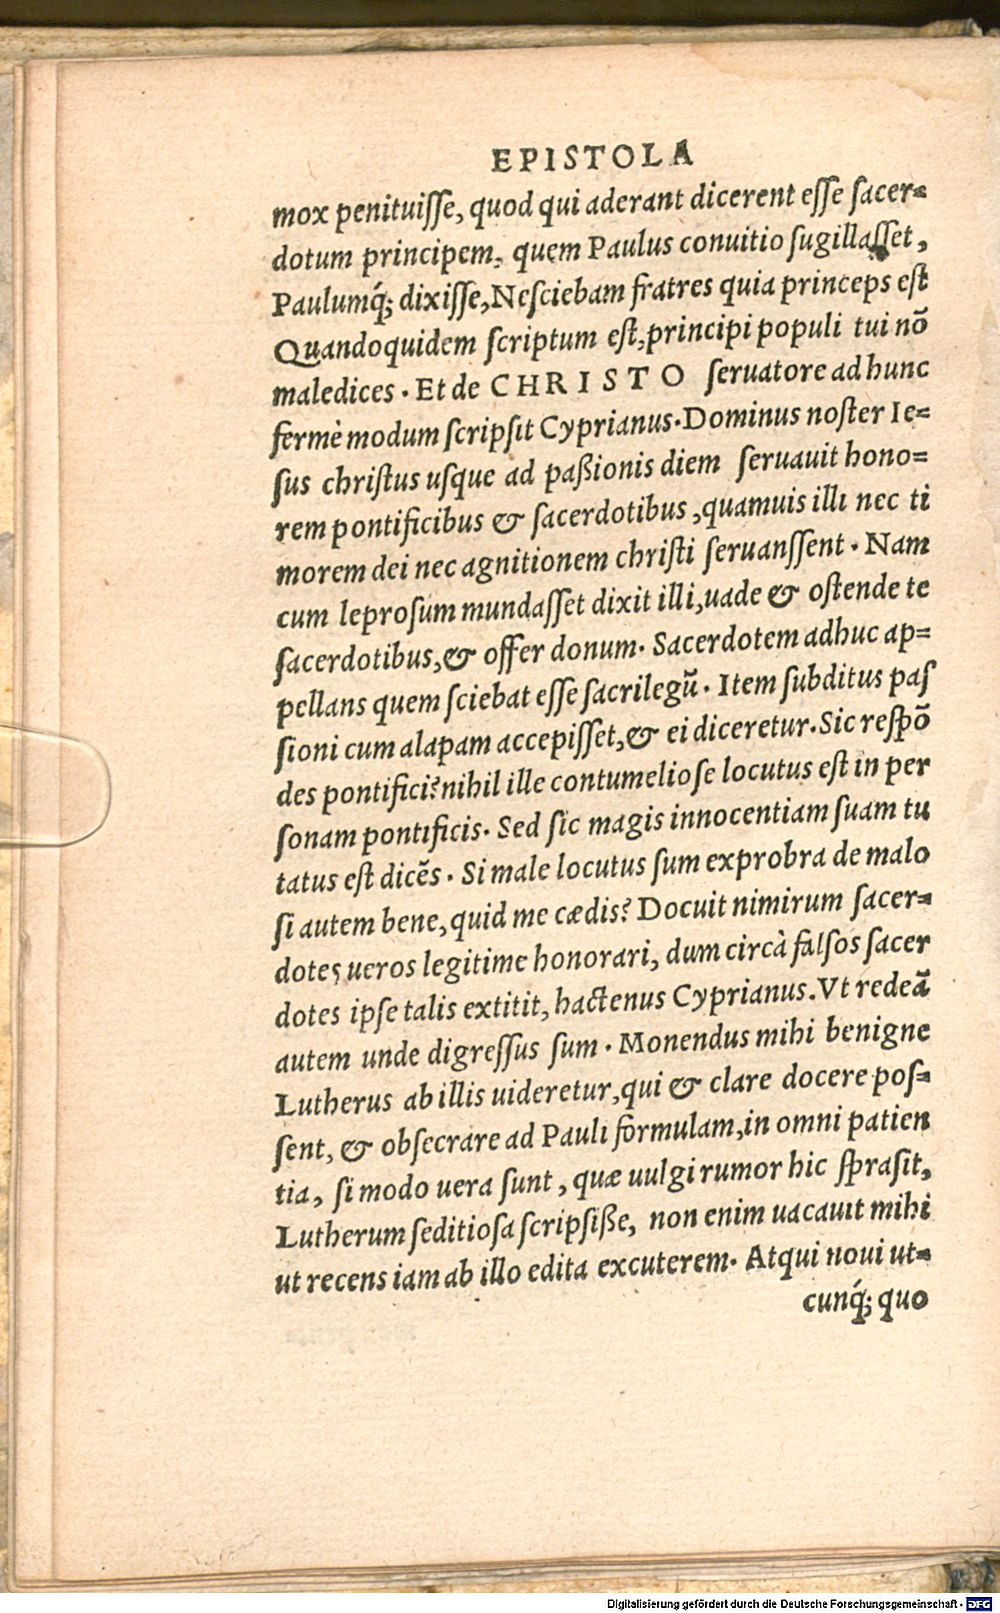 EPISTOLA
mox penituiſſe, quod qui aderant dicerent eſſe ſacer=
dotum principem, quem Paulus conuitio ſugillaſſet,
Paulumq́; dixiſſe, Neſciebam fratres quia princeps eſt
Quandoquidem ſcriptum eſt, principi populi tui nō
maledices. Et de CHRISTO ſeruatore ad hunc
fermè modum ſcripſit Cyprianus. Dominus noſter Ie=
ſus chriſtus uſque ad paßionis diem ſeruauit hono=
rem pontificibus & ſacerdotibus, quamuis illi nec ti
morem dei nec agnitionem chriſti ſeruanſſent. Nam
cum leproſum mundaſſet dixit illi, uade & oſtende te
ſacerdotibus, & offer donum. Sacerdotem adhuc ap=
pellans quem ſciebat eſſe ſacrilegū. Item ſubditus paſ
ſioni cum alapam accepiſſet, & ei diceretur. Sic reſpō
des pontifici? nihil ille contumelioſe locutus eſt in per
ſonam pontificis. Sed ſic magis innocentiam ſuam tu
tatus eſt dicēs. Si male locutus ſum exprobra de malo
ſi autem bene, quid me cædis? Docuit nimirum ſacer=
dotes ueros legitime honorari, dum circà falſos ſacer
dotes ipſe talis extitit, hactenus Cyprianus. Vt redeā
autem unde digreſſus ſum. Monendus mihi benigne
Lutherus ab illis uideretur, qui & clare docere poſ=
ſent, & obſecrare ad Pauli formulam, in omni patien
tia, ſi modo uera ſunt, quæ uulgi rumor hic ſpraſit,
Lutherum ſeditioſa ſcripſiße, non enim uacauit mihi
ut recens iam ab illo edita excuterem. Atqui noui ut=
cunq́; quo
Digitalisierung gefördert durch die Deutsche Forschungsgemeinschaft - DFG